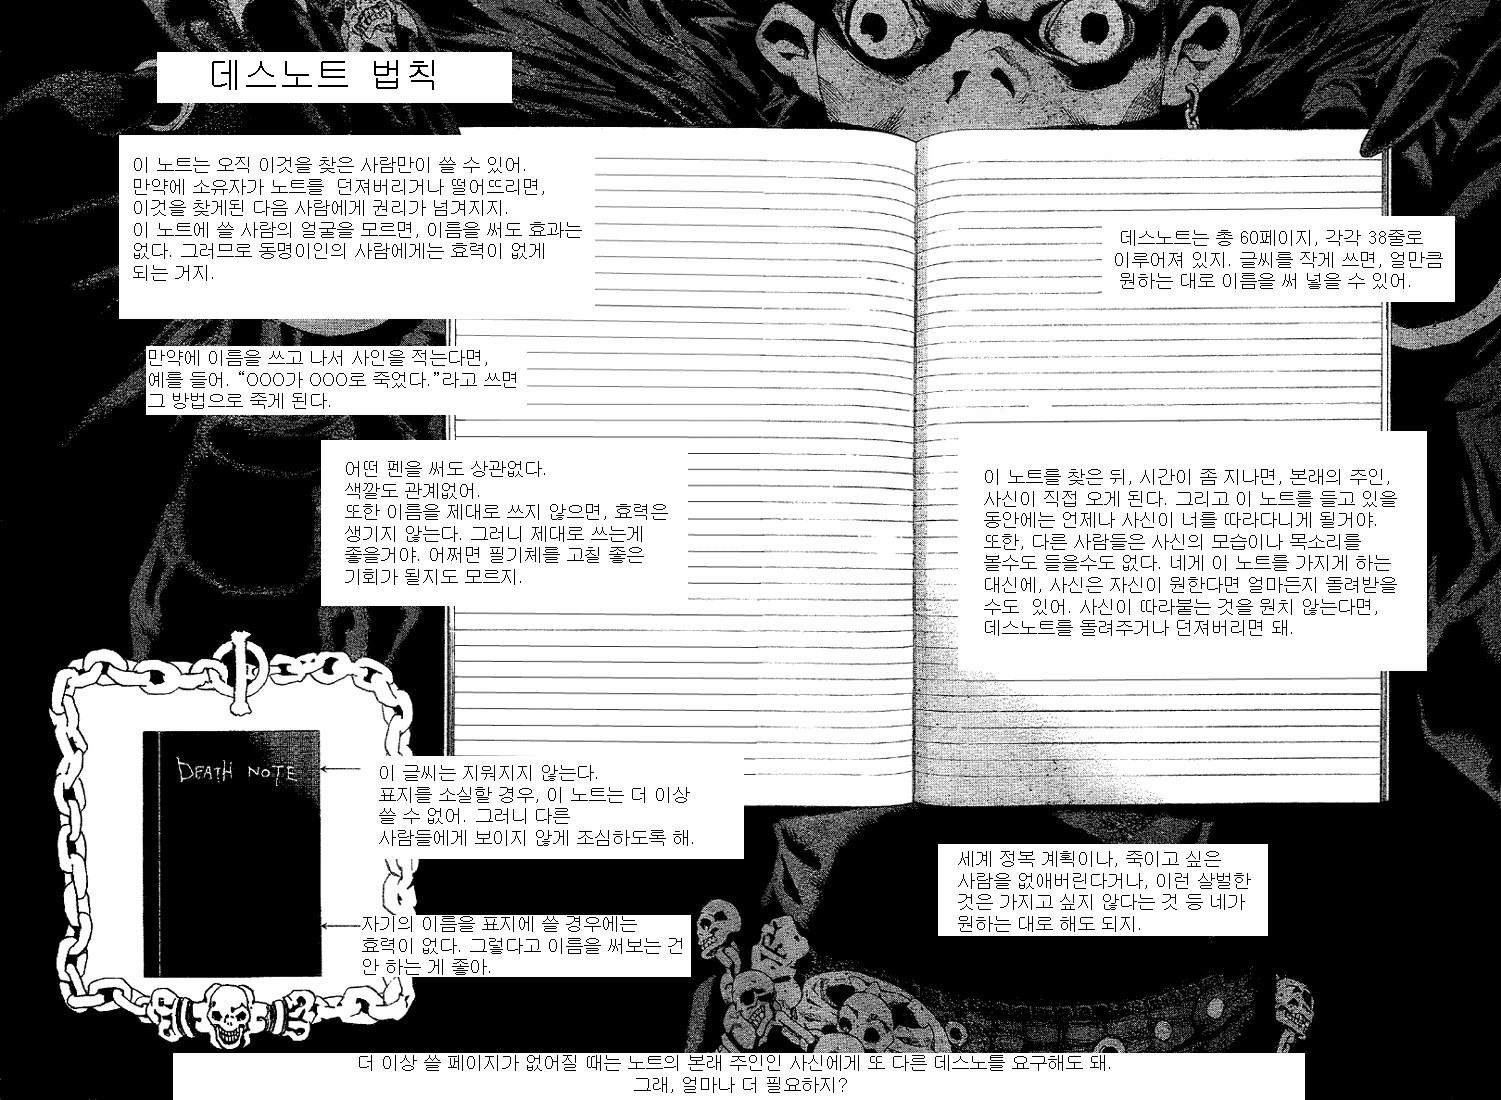 데스노트 법칙
이 노트는 오직 이것을 찾은 사람만이 쓸 수 있어.
만약에 소유자가 노트를 던져버리거나 떨어뜨리면,
이것을 찾게된 다음 사람에게 권리가 넘겨지지.
이 노트에 쓸 사람의 얼굴을 모르면, 이름을 써도 효과는
없다. 그러므로 동명이인의 사람에게는 효력이 없게
되는 거지.
데스노트는 총 60페이지, 각각 38줄로
이루어져 있지. 글씨를 작게 쓰면, 얼만큼
원하는 대로 이름을 써 넣을 수 있어.
만약에 이름을 쓰고 나서 사인을 적는다면,
예를 들어. “OOO가 OOO로 죽었다.”라고 쓰면
그 방법으로 죽게 된다.
어떤 펜을 써도 상관없다.
색깔도 관계없어.
또한 이름을 제대로 쓰지 않으면, 효력은
생기지 않는다. 그러니 제대로 쓰는게
좋을거야. 어쩌면 필기체를 고칠 좋은
기회가 될지도 모르지.
이 노트를 찾은 뒤, 시간이 좀 지나면, 본래의 주인,
사신이 직접 오게 된다. 그리고 이 노트를 들고 있을
동안에는 언제나 사신이 너를 따라다니게 될거야.
또한, 다른 사람들은 사신의 모습이나 목소리를
볼수도 들을수도 없다. 네게 이 노트를 가지게 하는
대신에, 사신은 자신이 원한다면 얼마든지 돌려받을
수도 있어. 사신이 따라붙는 것을 원치 않는다면,
데스노트를 돌려주거나 던져버리면 돼.
DEATH NOTE
이 글씨는 지워지지 않는다.
표지를 소실할 경우, 이 노트는 더 이상
쓸 수 없어. 그러니 다른
사람들에게 보이지 않게 조심하도록 해.
자기의 이름을 표지에 쓸 경우에는
효력이 없다. 그렇다고 이름을 써보는 건
안 하는 게 좋아.
세계 정복 계획이나, 죽이고 싶은
사람을 없애버린다거나, 이런 살벌한
것은 가지고 싶지 않다는 것 등 네가
원하는 대로 해도 되지.
더 이상 쓸 페이지가 없어질 때는 노트의 본래 주인인 사신에게 또 다른 데스노틀 요구해도 돼.
그래, 얼마나 더 필요하지?